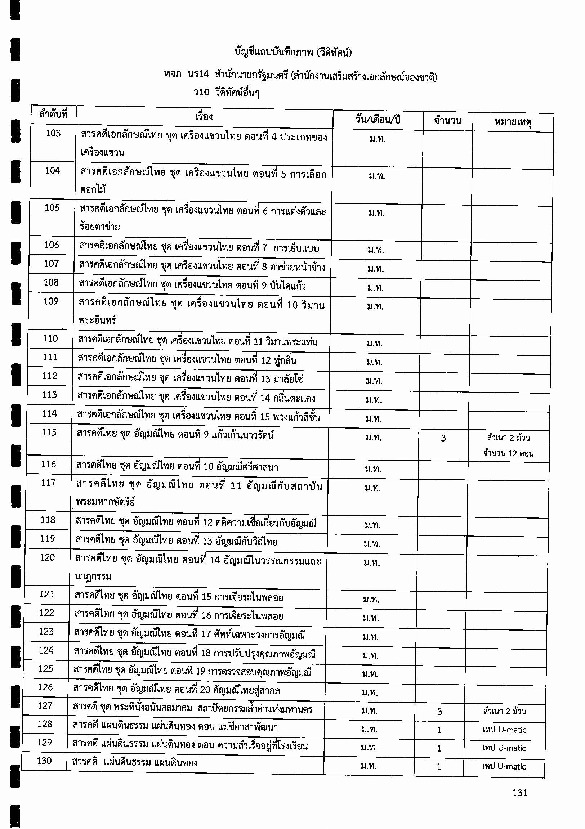 บัญชีแถบบันทึกภาพ (วีดิทัศน์)
หจภ นร14 สำนักนายกรัฐมนตรี (สำนักงานเสริมสร้างเอกลักษณ์ของชาติ)
ว10 วีดิทัศน์อื่นๆ
ลำดับที่ เรื่อง วัน/เดือน/ปี จำนวน หมายเหตุ
103 สารคดีเอกลักษณ์ไทย ชุด เครื่องแขวนไทย ตอนที่ 4 ประเภทของ ม.ท.
เครื่องแขวน
104 สารคดีเอกลักษณ์ไทย ชุด เครื่องแขวนไทย ตอนที่ 5 การเลือก ม.ท.
ดอกไม้
105 สารคดีเอกลักษณ์ไทย ชุด เครื่องแขวนไทย ตอนที่ 6 การแต่งตัวและ ม.ท.
ร้อยตาข่าย
106 สารคดีเอกลักษณ์ไทย ชุด เครื่องแขวนไทย ตอนที่ 7 การเย็บแบบ ม.ท.
107 สารคดีเอกลักษณ์ไทย ชุด เครื่องแขวนไทย ตอนที่ 8 ตาข่ายหน้าช้าง ม.ท.
108 สารคดีเอกลักษณ์ไทย ชุด เครื่องแขวนไทย ตอนที่ 9 บันไดแก้ว ม.ท.
109 สารคดีเอกลักษณ์ไทย ชุด เครื่องแขวนไทย ตอนที่ 10 วิมาน ม.ท.
พระอินทร์
110 สารคดีเอกลักษณ์ไทย ชุด เครื่องแขวนไทย ตอนที่ 11 วิมานพระแท่น ม.ท.
111 สารคดีเอกลักษณ์ไทย ชุด เครื่องแขวนไทย ตอนที่ 12 พู่กลิ่น ม.ท.
112 สารคดีเอกลักษณ์ไทย ชุด เครื่องแขวนไทย ตอนที่ 13 มาลัยโซ่ ม.ท.
113 สารคดีเอกลักษณ์ไทย ชุด เครื่องแขวนไทย ตอนที่ 14 กลิ่นตะแคง ม.ท.
114 สารคดีเอกลักษณ์ไทย ชุด เครื่องแขวนไทย ตอนที่ 15 พวงแก้วสี่ชั้น ม.ท.
115 สารคดีไทย ชุด อัญมณีไทย ตอนที่ 9 แก้วเก้าเนาวรัตน์ ม.ท. 3 สำเนา 2 ม้วน
จำนวน 12 ตอน
116 สารคดีไทย ชุด อัญมณีไทย ตอนที่ 10 อัญมณีศรีศาสนา ม.ท.
117 สารคดีไทย ชุด อัญมณีไทย ตอนที่ 11 อัญมณีกับสถาบัน ม.ท.
พระมหากษัตริย์
118 สารคดีไทย ชุด อัญมณีไทย ตอนที่ 12 คติความเชื่อเกี่ยวกับอัญมณี ม.ท.
119 สารคดีไทย ชุด อัญมณีไทย ตอนที่ 13 อัญมณีกับวิถีไทย ม.ท.
120 สารคดีไทย ชุด อัญมณีไทย ตอนที่ 14 อัญมณีในวรรณกรรมและ ม.ท.
นาฏกรรม
121 สารคดีไทย ชุด อัญมณีไทย ตอนที่ 15 การเจียระไนพลอย ม.ท.
122 สารคดีไทย ชุด อัญมณีไทย ตอนที่ 16 การเจียระไนพลอย ม.ท.
123 สารคดีไทย ชุด อัญมณีไทย ตอนที่ 17 ศัพท์เฉพาะวงการอัญมณี ม.ท.
124 สารคดีไทย ชุด อัญมณีไทย ตอนที่ 18 การปรับปรุงคุณภาพอัญมณี ม.ท.
125 สารคดีไทย ชุด อัญมณีไทย ตอนที่ 19 การตรวจสอบคุณภาพอัญมณี ม.ท.
126 สารคดีไทย ชุด อัญมณีไทย ตอนที่ 20 อัญมณีไทยสู่สากล ม.ท.
127 สารคดี ชุด พระที่นั่งอนันตสมาคม สถาปัตยกรรมล้ำค่าแห่งมหานคร ม.ท. 3 สำเนา 2 ม้วน
128 สารคดี แผ่นดินธรรม แผ่นดินทอง ตอน แม่ชีอาสาพัฒนา ม.ท. 1 เทป U-matic
129 สารคดี แผ่นดินธรรม แผ่นดินทอง ตอน ความสำเร็จอยู่ที่โรงเรียน ม.ท. 1 เทป U-matic
130 สารคดี แผ่นดินธรรม แผ่นดินทอง ม.ท. 1 เทป U-matic
131